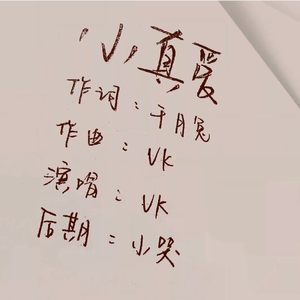 小真爱
作词：千月兔
作曲：VK
演唱：VK
后期：小哭